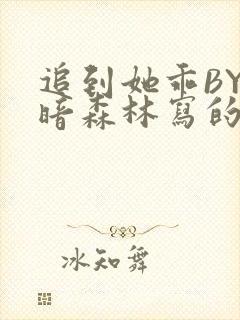 追到她乖BY
暗森林寫的
冰知舞